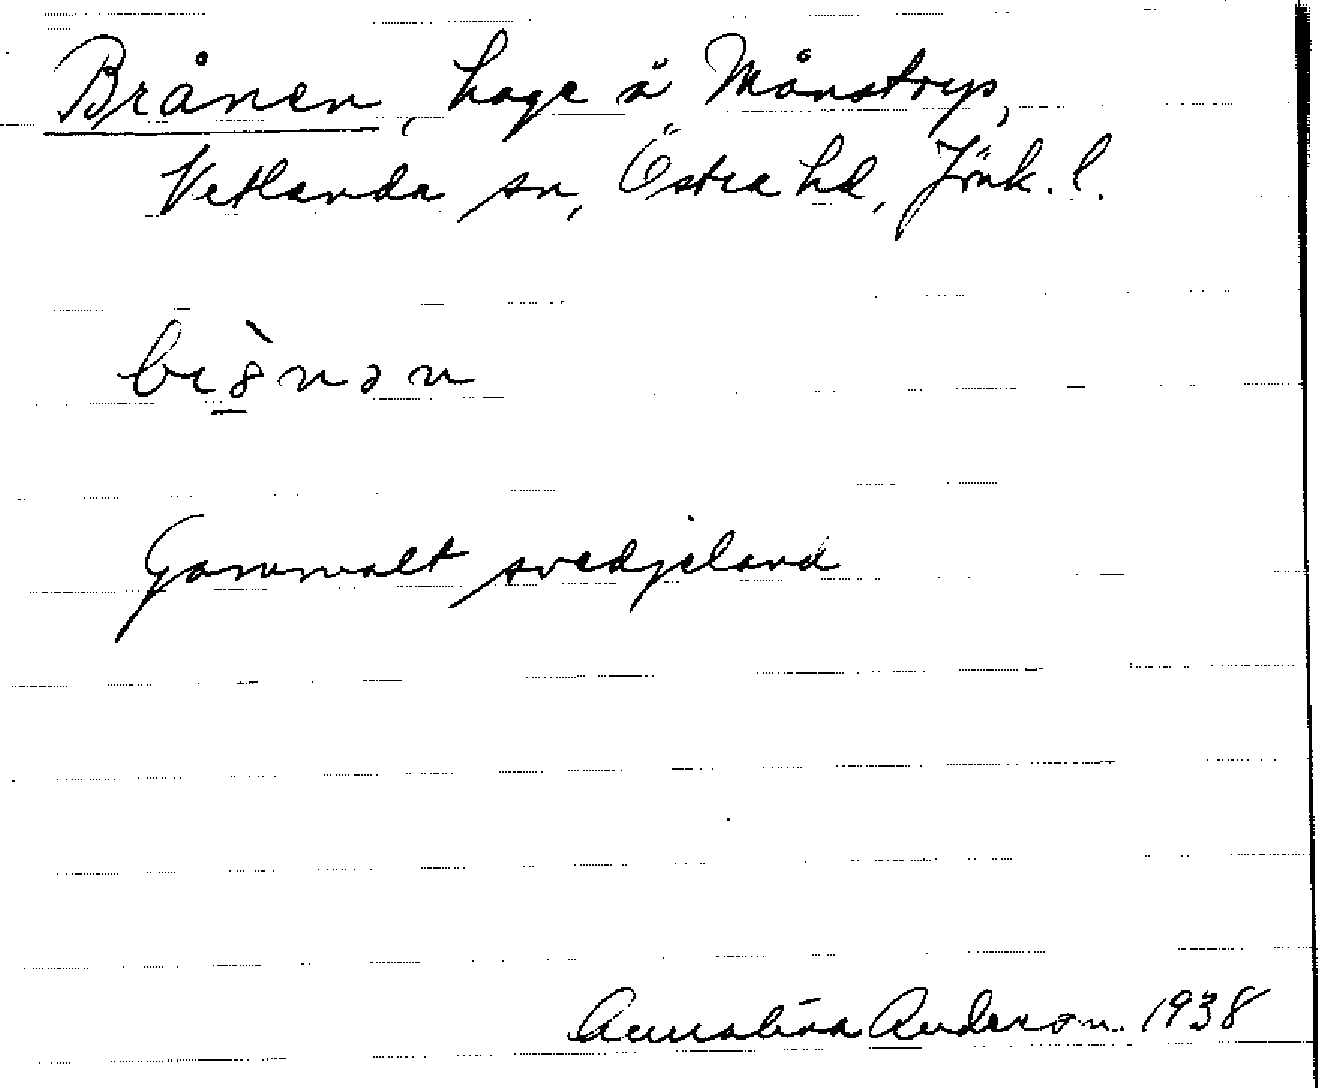 Brånen, hage å Månstorp,
Vetlanda sn, Östra hd, Jönk. l.
Gammalt svedjeland
Annalisa Anderson. 1938